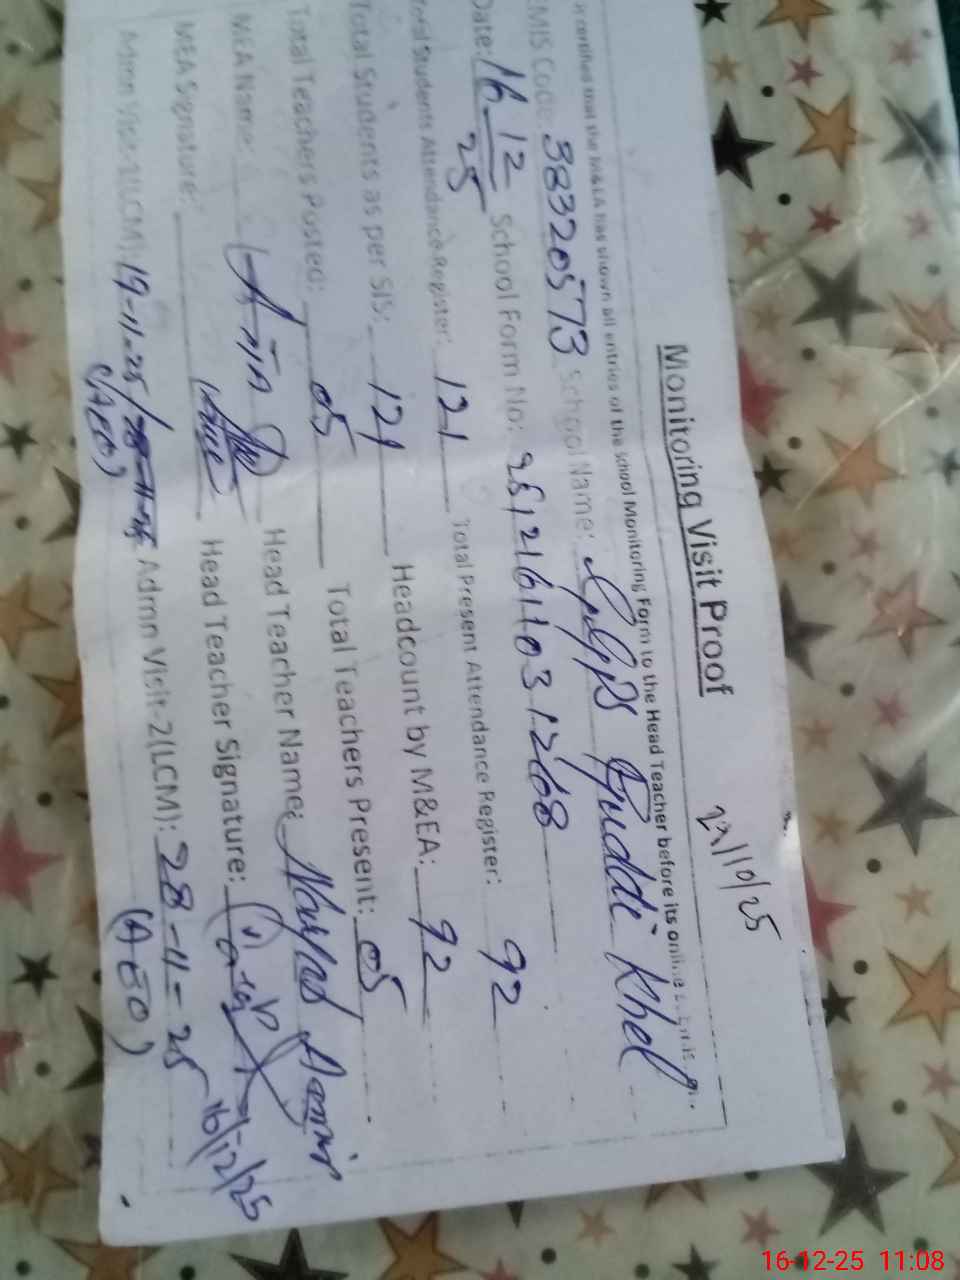 Monitoring Visit Proof
23/10/25
certified that the M&EA has shown all entries of the school Monitoring Form to the Head Teacher before its online
EMIS Code: 38320573 School Name: GGPS Guddi Khel
Date: 16-12-25 School Form No: 25121611031268
Total Students Attendance Register: 121 Total Present Attendance Register: 92
Total Students as per SIS: 121 Headcount by M&EA: 92
Total Teachers Posted: 05 Total Teachers Present: 05
MEA Name: Head Teacher Name:
MEA Signature: Head Teacher Signature: 16/12/25
Admn Visit-1(LCM): 19-11-25 / (AEO) Admn Visit-2(LCM): 28-11-25 (AEO)
16-12-25 11:08